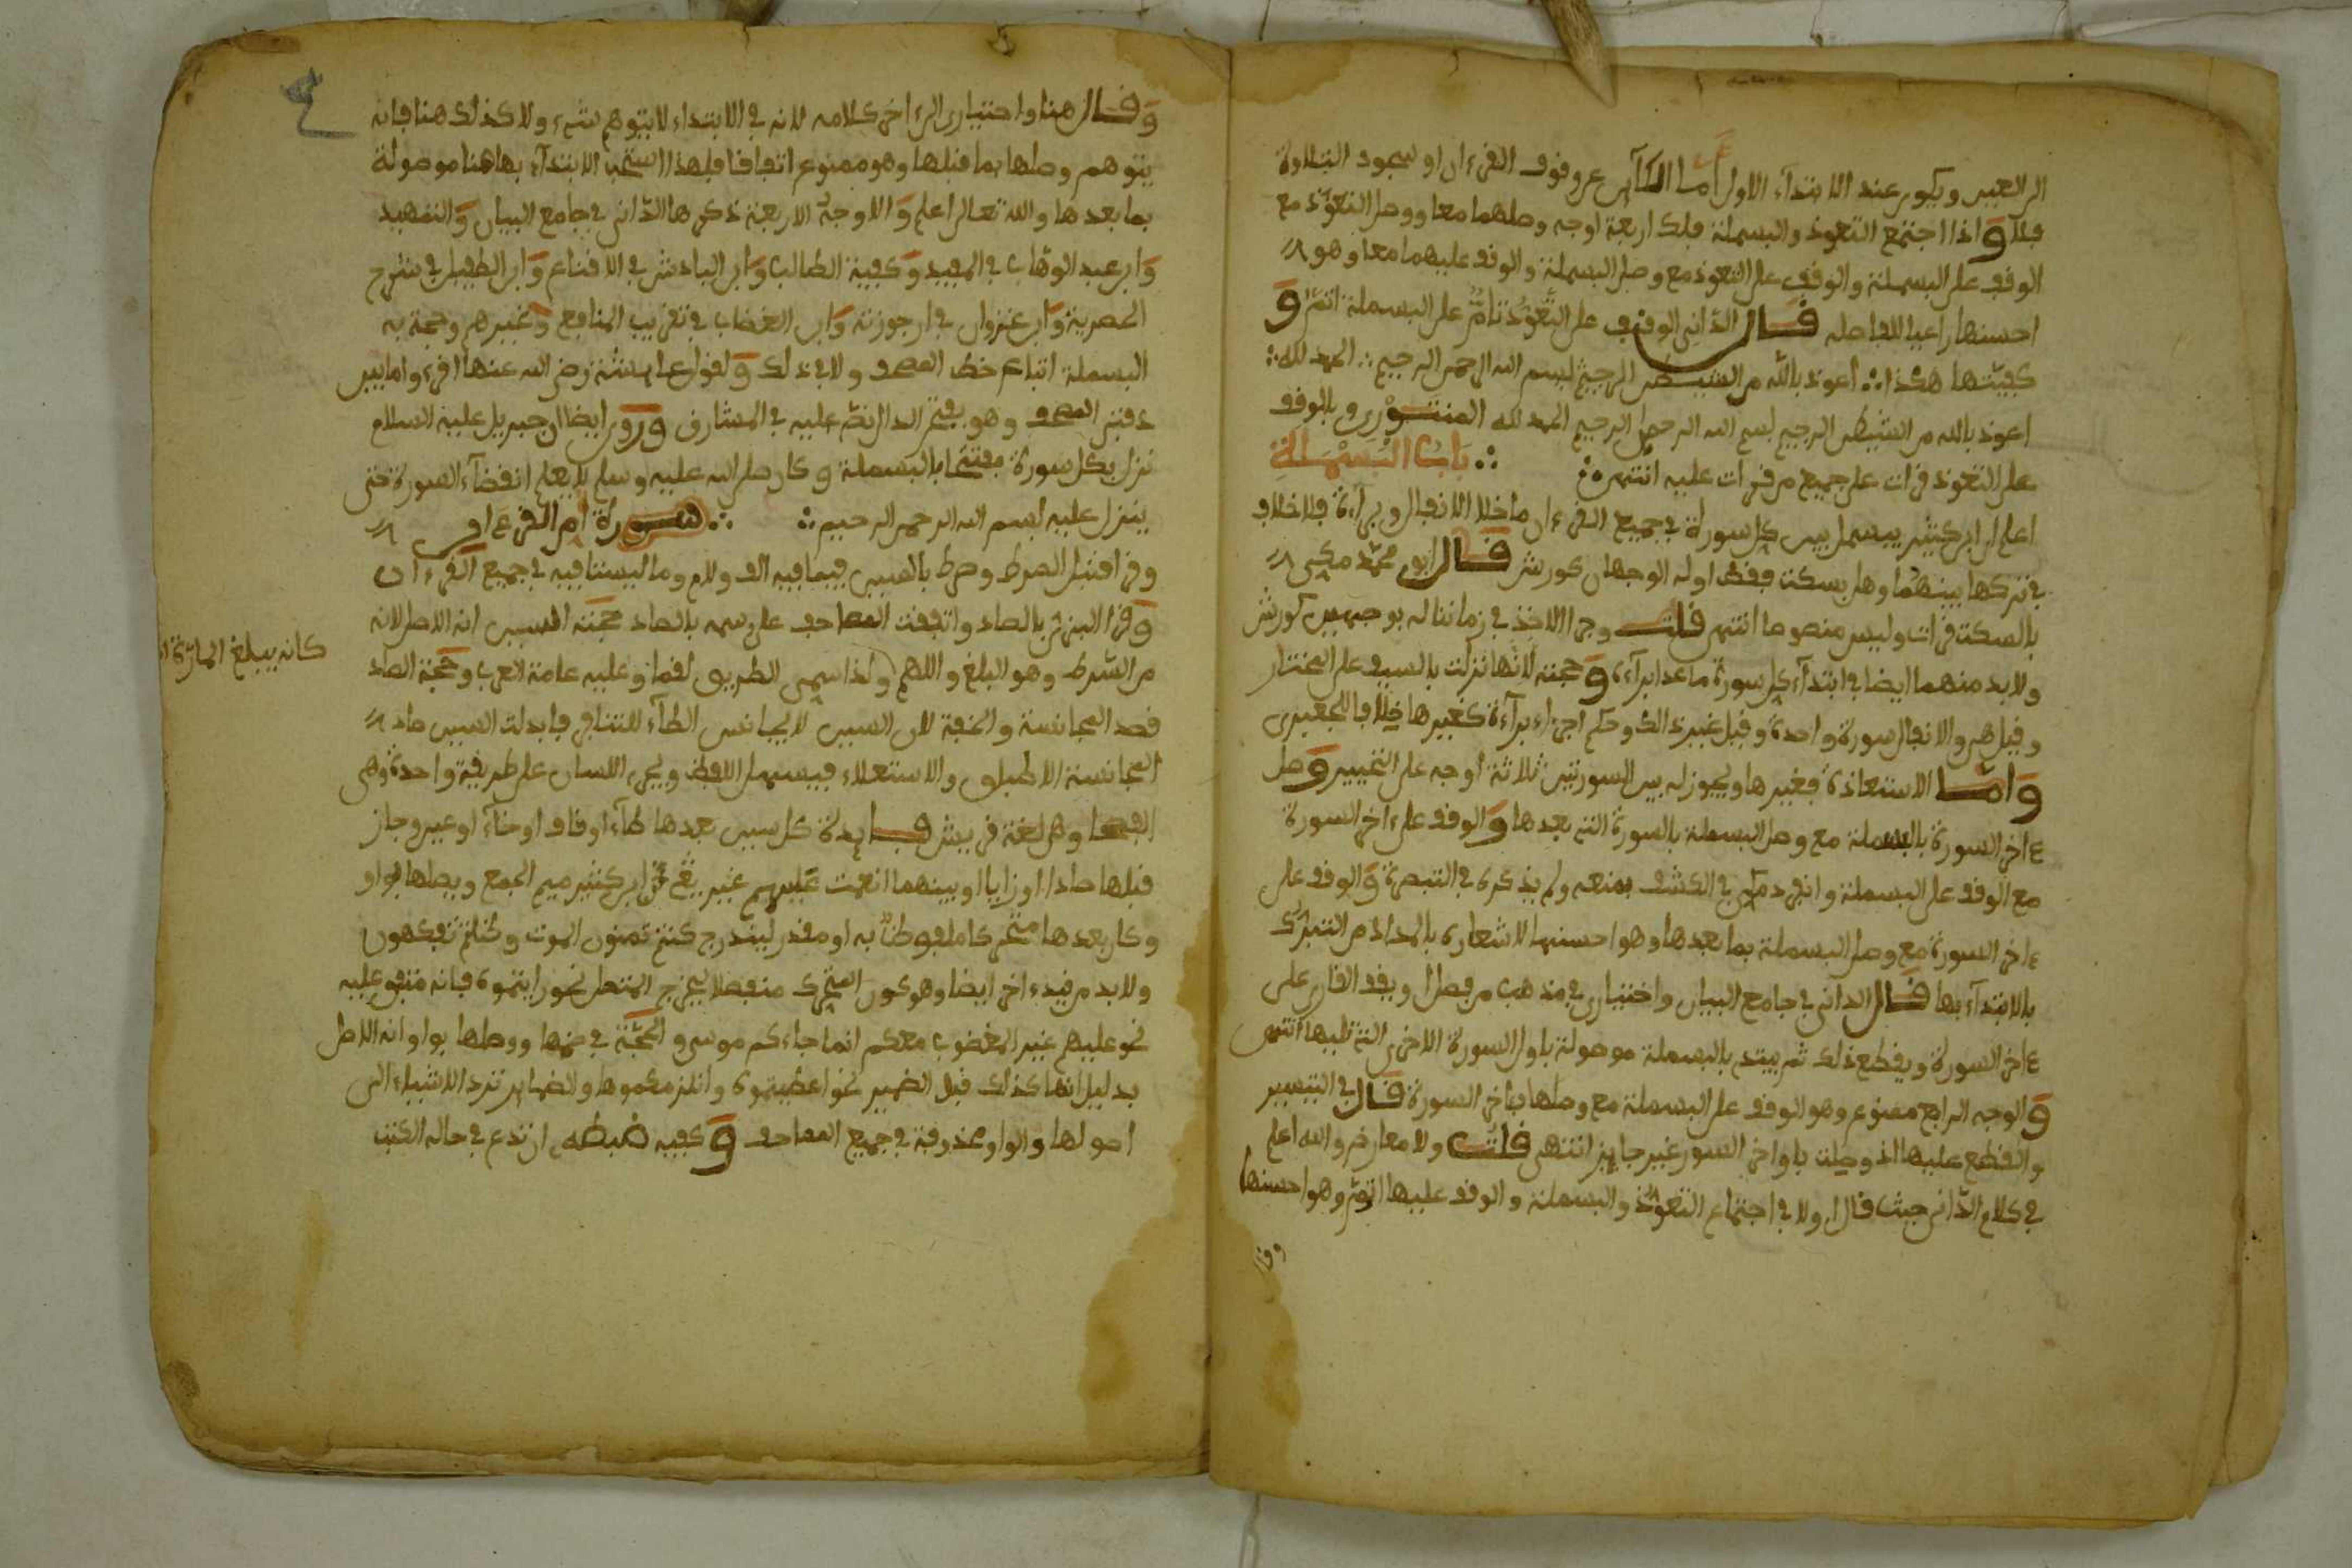 الى الغير ويكون عند الابتداء الاول اما الكائن عن وقوف القرءان او سجود التلاوة
فلا واذا اجتمع التعوذ والبسملة فلك اربعة اوجه وصلهما معا ووصل التعوذ مع
الوقف على البسملة والوقف على التعوذ مع وصل البسملة والوقف عليهما معا وهو
احسنها راعيا للفاصله قال الداني الوقف على التعوذ تام وعلى البسملة اتم و
كيفيتها هكذا أعوذ بالله من الشيطن الرجيم بسم الله الرحمن الرحيم الحمد لله
اعوذ بالله من الشيطن الرجيم بسم الله الرحمن الرحيم الحمد لله المنتوري وبالوقف
على التعوذ قرات على جميع من قرات عليه انتهى باب البسملة
اعلم ان ابن كثير يبسمل بين كل سورة في جميع القرءان ما خلا الانفال وبراءة فلا خلاف
في تركها بينهما وهل بسكت فقط اوله الوجهان كورش قال ابو محمد مكي
بالسكت قرات وليس منصوصا انتهى قلت وجرا الاخذ في زماننا له بوجهين كورش
ولا بد منهما ايضا في ابتداء كل سورة ما عدا براءة وحجته لانها نزلت بالسيف على المختار
وقيل هي والانفال سورة واحدة وقيل غير ذالك وحكم اجزاء براءة كغيرها خلافا للجعبري
واما الاستعاذة فغيرها ويجوز له بين السورتين ثلاثة أوجه على التخيير وصل
ءاخر السورة بالبسملة مع وصل البسملة بالسورة التي بعدها والوقف على ءاخر السورة
مع الوقف على البسملة وانفرد مكي في الكشف بمنعه ولم يذكره في التبصرة والوقف على
ءاخر السورة مع وصل البسملة بما بعدها وهو احسنها لاشعاره بالمراد من التبرك
بالابتداء بها قال الداني في جامع البيان واختياري في مذهب من فصل ان يقف القاري على
ءاخر السورة ويقطع ذلك ثم يبتدي بالبسملة موصولة باول السورة الاخرى التي تليها انتهى
والوجه الرابع ممنوع وهو الوقف على البسملة مع وصلها بأخر السورة قال في التيسير
والقطع عليها اذ وصلت باواخر السور غير جايز انتهى قلت ولا معارض والله اعلم
في كلام الداني حيث قال اولا في اجتماع التعوذ والبسملة والوقف عليها اتم وهو احسنها
وقال
وقال هنا واختياري الى ءاخر كلامه لانه في الابتداء لا يتوهم شيء ولا كذلك هنا فانه
يتوهم وصلها بما قبلها وهو ممنوع اتفاقا فلهذا استحب الابتداء بها هنا موصولة
بما بعدها والله تعالى اعلم والاوجه الاربعة ذكرها الداني في جامع البيان والتمهيد
وابن عبد الوهاب في المفيد وكفية الطالب وابن الباذش في الاقناع وابن الطفيل في شرح
الحصرية وابن غزوان في ارجوزته وابن القصاب في تقريب المنافع وغيرهم وحجته
البسملة اتباع خط المصحف ولا في ذلك ولقول عايشة رضي الله عنها اقرءوا ما بين
دفتي المصحف وهو بفتح الدال نص عليه في المشارق وروي ايضا ان جبريل عليه السلام
نزل بكل سورة مفتتحا بالبسملة وكان صلى الله عليه وسلم لا يعلم انقضاء السورة حتى
ينزل عليه بسم الله الرحمن الرحيم سورة ام القرءان
وقرا قنبل السرط وسرط بالسين فيما فيه الف ولام وما ليستا فيه في جميع القرءان
وقرا البزي بالصاد واتفقت المصاحف على رسمه بالصاد حجته السين انه الاصل لانه
من السرط وهو البلغ واللقم ولذا سمي الطريق لقما وعليه عامة العرب وحجة الصاد
قصد المجانسة والخفة لان السين لا يجانس الطاء للتنافر فابدلت السين صاد
لمجانسة الاطباق والاستعلاء فيسهل اللفظ ويجري اللسان على طريقة واحدة وهي
الفصحا وهي لغة قريش فايدة كل سين بعدها طاء او قاف او خاء او غين وجاز
قبلها صادا او زايا او بينهما انعمت عليهم غير ابن كثير ميم الجمع ويصلها بواو
وكان بعدها متحرك ملفوظ به او مقدر ليندرج كنتم تمنون الموت وظلتم تفكهون
ولا بد من قيدء اخر ايضا وهو كون المتحرك منفصلا ليخرج المتصل نحو رايتموه فانه متفق عليه
نحو عليهم غير المغضوب معكم انما جاءكم موسى والحجة في ضمها ووصلها بواو انه الاصل
بدليل انها كذلك قبل الضمير نحو اعطيتموه وانلزمكموها والضماير ترد الاشياء الى
اصولها والواو محذوفة في جميع المصاحف وكيفيه ضبطه ان تدع في حاله الكتب
كانه يبلغ المارة